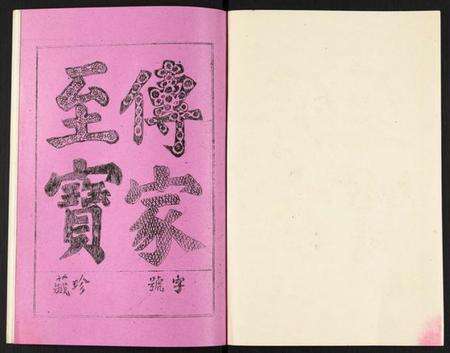 傳家
至寶
字號珍藏